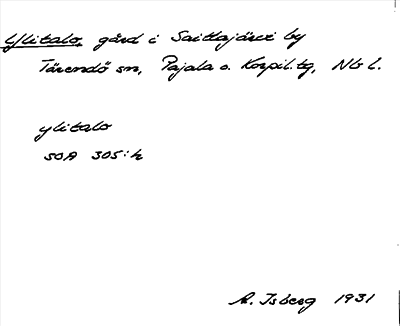 Ylitalo, gård i Saittajärvi by
Tärendö sn, Pajala o. Korpil. tg, Nb l.
ylitalo
SOA 305:h
A. Isberg 1931